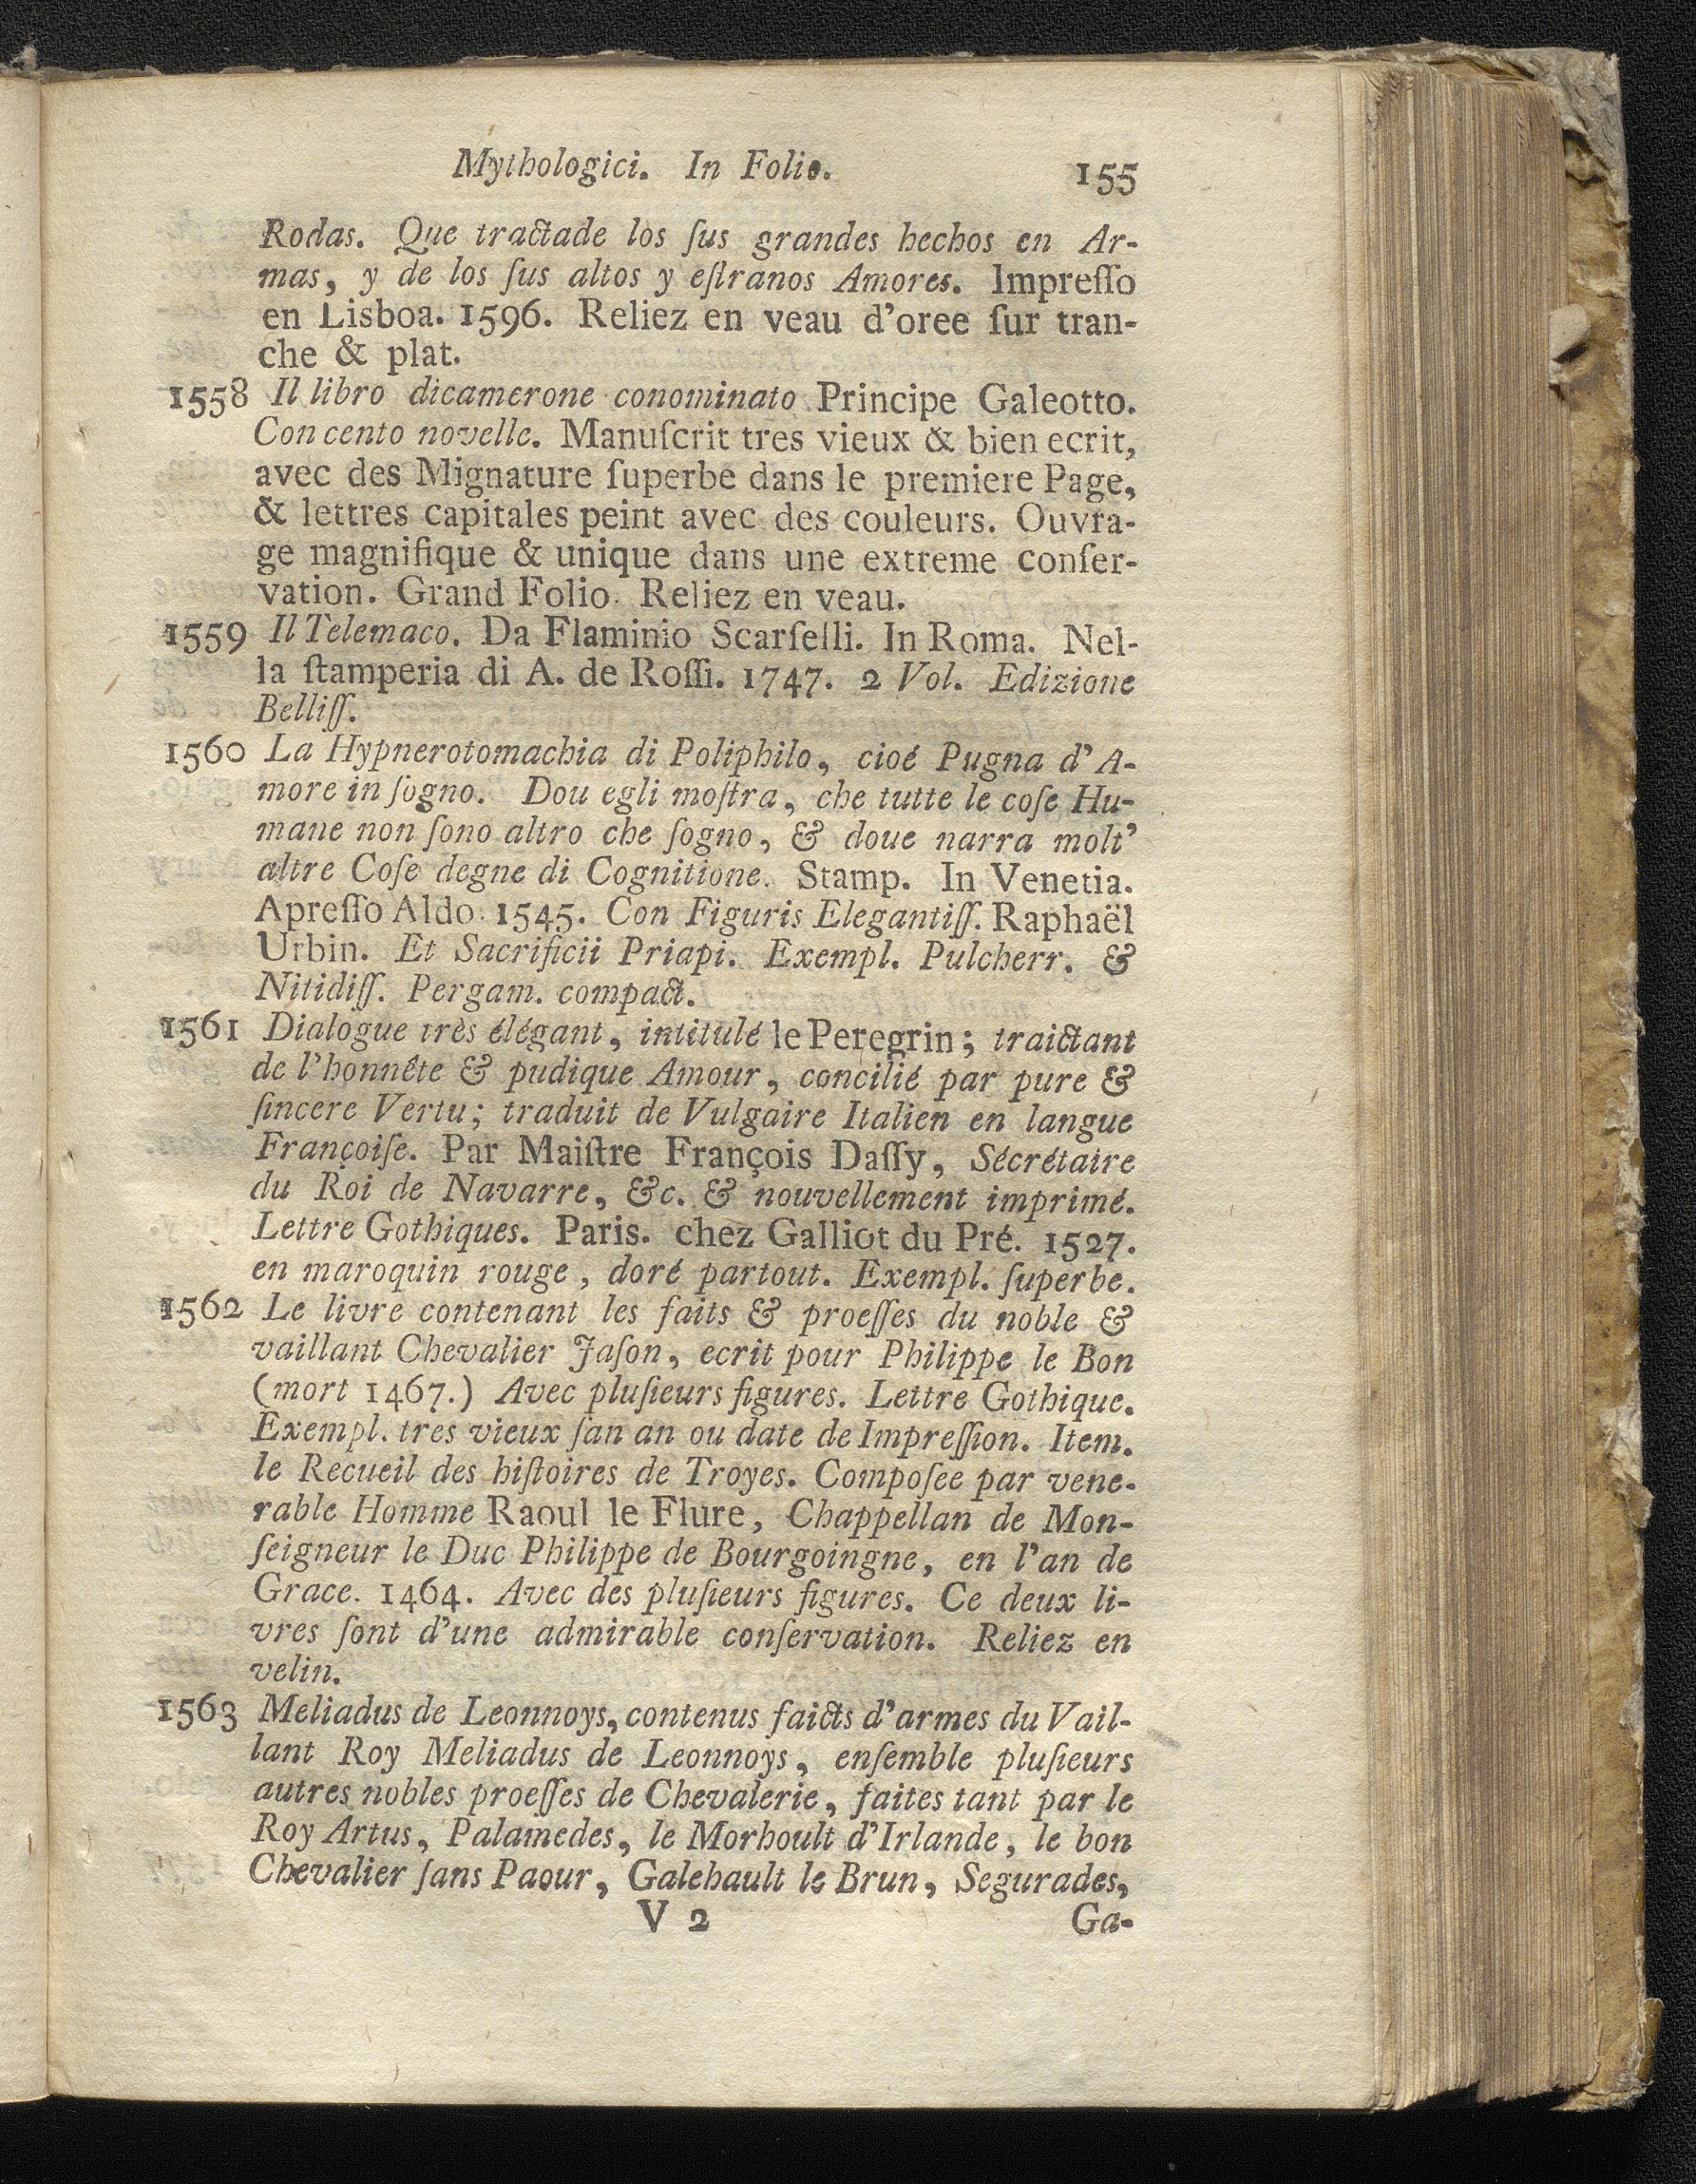 Mythologici. In Folio. 155
Rodas. Que tractade los ſus grandes hechos en Ar-
mas, y de los ſus altos y eſtranos Amores. Impreſſo
en Lisboa. 1596. Reliez en veau d'oree ſur tran-
che & plat.
1558 Il libro dicamerone conominato Principe Galeotto.
Con cento novelle. Manuſcrit tres vieux & bien ecrit,
avec des Mignature ſuperbe dans le premiere Page,
& lettres capitales peint avec des couleurs. Ouvra-
ge magnifique & unique dans une extreme conſer-
vation. Grand Folio. Reliez en veau.
1559 Il Telemaco. Da Flaminio Scarſelli. In Roma. Nel-
la ſtamperia di A. de Roſſi. 1747. 2 Vol. Edizione
Belliſſ.
1560 La Hypnerotomachia di Poliphilo, cioé Pugna d'A-
more in ſogno. Dou egli moſtra, che tutte le coſe Hu-
mane non ſono altro che ſogno, & doue narra molt'
altre Coſe degne di Cognitione. Stamp. In Venetia.
Apreſſo Aldo. 1545. Con Figuris Elegantiſſ. Raphaël
Urbin. Et Sacrificii Priapi. Exempl. Pulcherr. &
Nitidiſſ. Pergam. compact.
1561 Dialogue très élégant, intitulé le Peregrin; traictant
de l'honnête & pudique Amour, concilié par pure &
ſincere Vertu; traduit de Vulgaire Italien en langue
Françoiſe. Par Maiſtre François Daſſy, Sécrétaire
du Roi de Navarre, &c. & nouvellement imprimé.
Lettre Gothiques. Paris. chez Galliot du Pré. 1527.
en maroquin rouge, doré partout. Exempl. ſuperbe.
1562 Le livre contenant les faits & proeſſes du noble &
vaillant Chevalier Jaſon, ecrit pour Philippe le Bon
(mort 1467.) Avec pluſieurs figures. Lettre Gothique.
Exempl. tres vieux ſan an ou date de Impreſſion. Item.
le Recueil des hiſtoires de Troyes. Compoſee par vene-
rable Homme Raoul le Flure, Chappellan de Mon-
ſeigneur le Duc Philippe de Bourgoingne, en l'an de
Grace. 1464. Avec des pluſieurs figures. Ce deux li-
vres ſont d'une admirable conſervation. Reliez en
velin.
1563 Meliadus de Leonnoys, contenus faicts d'armes du Vail-
lant Roy Meliadus de Leonnoys, enſemble pluſieurs
autres nobles proeſſes de Chevalerie, faites tant par le
Roy Artus, Palamedes, le Morhoult d'Irlande, le bon
Chevalier ſans Paour, Galehault le Brun, Segurades,
V 2 Ga-